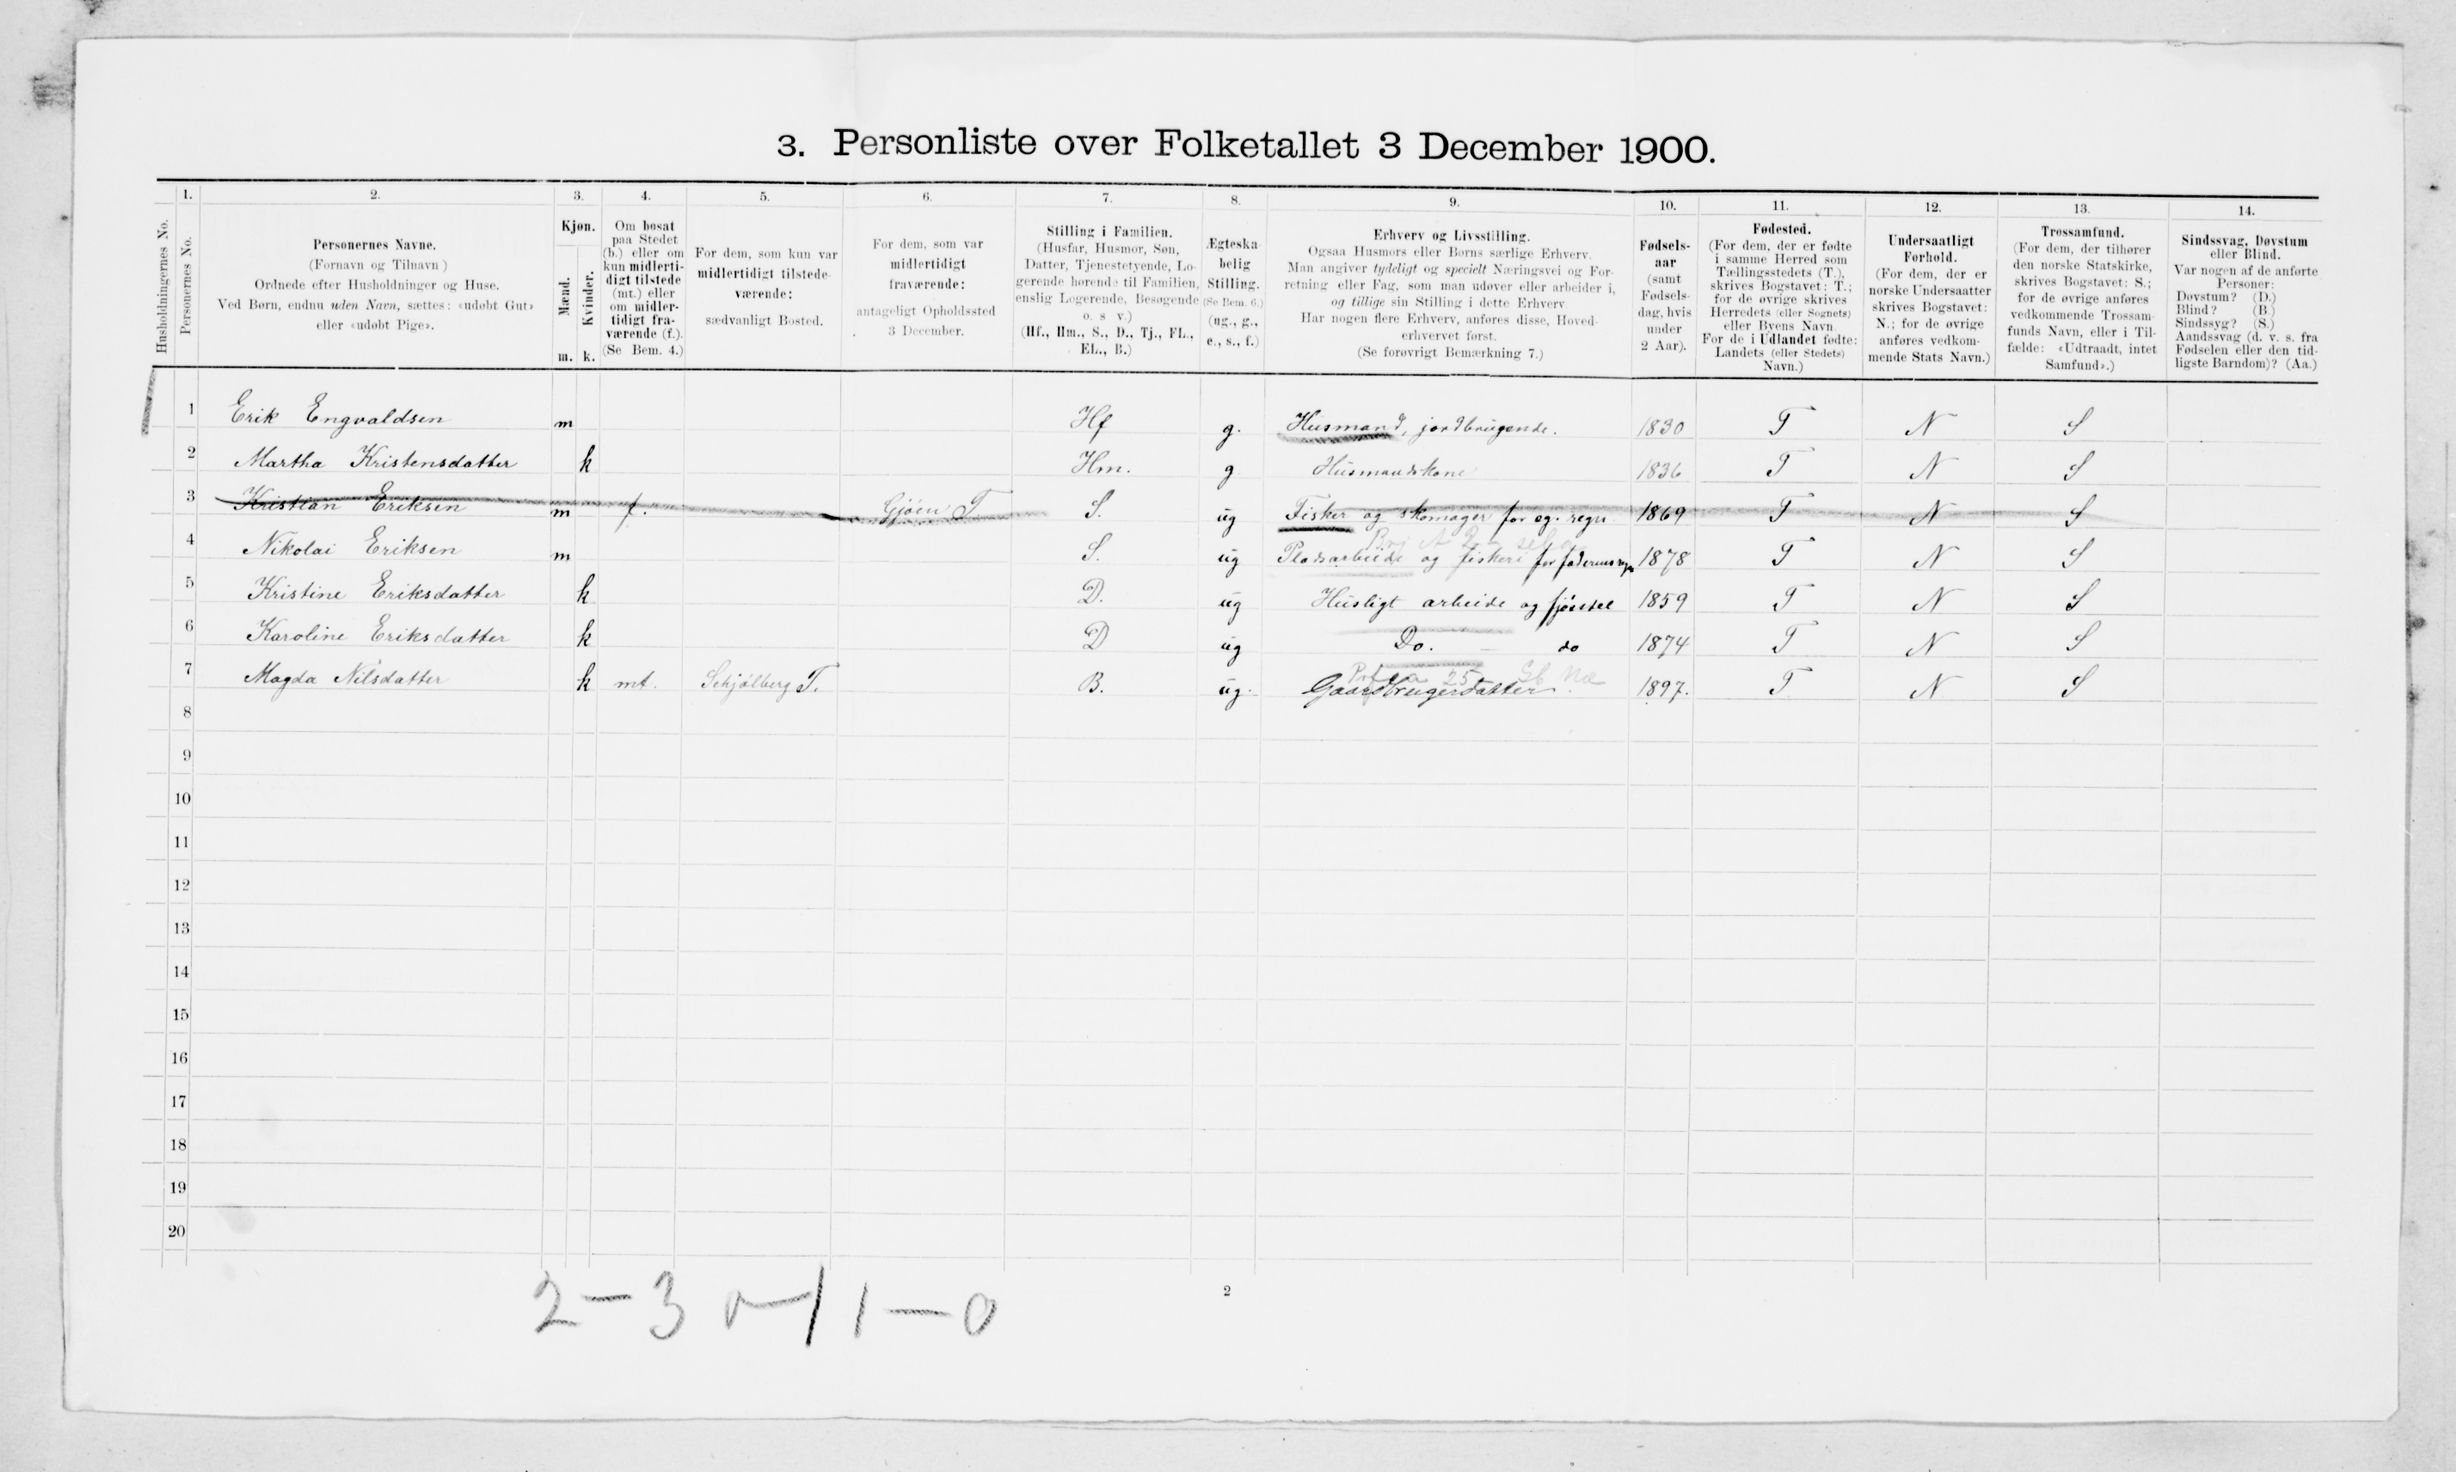 3. Personliste over Folketallet 3 December 1900.
1. 2. 3. 4. 5. 6. 7. 8. 9. 10. 11. 12. 13. 14.
Husholdningernes No.
Personernes No.
Personernes Navne.
(Fornavn og Tilnavn)
Ordnede efter Husholdninger og Huse.
Ved Børn, endnu uden Navn, sættes: «udøbt Gut»
eller «udøbt Pige».
Kjøn.
Mænd.
Kvinder.
m. k.
Om bosat
paa Stedet
(b.) eller om
kun midlerti-
digt tilstede
(mt.) eller
om midler-
tidigt fra-
værende (f.).
(Se Bem. 4.)
For dem, som kun var
midlertidigt tilstede-
værende:
sædvanligt Bosted.
For dem, som var
midlertidigt
fraværende:
antageligt Opholdssted
3 December.
Stilling i Familien.
(Husfar, Husmor, Søn,
Datter, Tjenestetyende, Lo-
gerende hørende til Familien,
enslig Logerende, Besøgende
o. s v.)
(Hf., Hm., S., D., Tj., FL.,
EL., B.)
Ægteska-
belig
Stilling.
(Se Bem. 6.)
(ug., g.,
e., s., f.)
Erhverv og Livsstilling.
Ogsaa Husmors eller Børns særlige Erhverv.
Man angiver tydeligt og specielt Næringsvei og For-
retning eller Fag, som man udøver eller arbeider i,
og tillige sin Stilling i dette Erhverv
Har nogen flere Erhverv, anføres disse, Hoved-
erhvervet først.
(Se forøvrigt Bemærkning 7.)
Fødsels-
aar
(samt
Fødsels-
dag, hvis
under
2 Aar).
Fødested.
(For dem, der er fødte
i samme Herred som
Tællingsstedets (T.),
skrives Bogstavet: T.;
for de øvrige skrives
Herredets (eller Sognets)
eller Byens Navn
For de i Udlandet fødte:
Landets (eller Stedets)
Navn.)
Undersaatligt
Forhold.
(For dem, der er
norske Undersaatter
skrives Bogstavet:
N.; for de øvrige
anføres vedkom-
mende Stats Navn.)
Trossamfund.
(For dem, der tilhører
den norske Statskirke,
skrives Bogstavet: S.;
for de øvrige anføres
vedkommende Trossam-
funds Navn, eller i Til-
fælde: «Udtraadt, intet
Samfund».)
Sindssvag, Døvstum
eller Blind.
Var nogen af de anførte
Personer:
Døvstum? (D.)
Blind? (B.)
Sindssyg? (S.)
Aandssvag (d. v. s. fra
Fødselen eller den tid-
ligste Barndom)? (Aa.)
1 Erik Engvaldsen m Hf g. Husmand, jordbrugende. 1830 T N S
2 Martha Kristensdatter k Hm. g Husmandskone 1836 T N S
3 Kristian Eriksen m f. Gjøen T S. ug Fisker og skomager for eg. regn 1869 T N S
4 Nikolai Eriksen m S. ug Pladsarbeide og fiskeri for faderens regn 1878 T N S
5 Kristine Eriksdatter k D. ug Husligt arbeide og fjøsstel 1859 T N S
6 Karoline Eriksdatter k D ug Do. - do 1874 T N S
7 Magda Nilsdatter k mt. Schjölberg T. B. ug. Gaardbrugerdatter. 1897. T N S
8
9
10
11
12
13
14
15
16
17
18
19
20
2
2-3 1-0